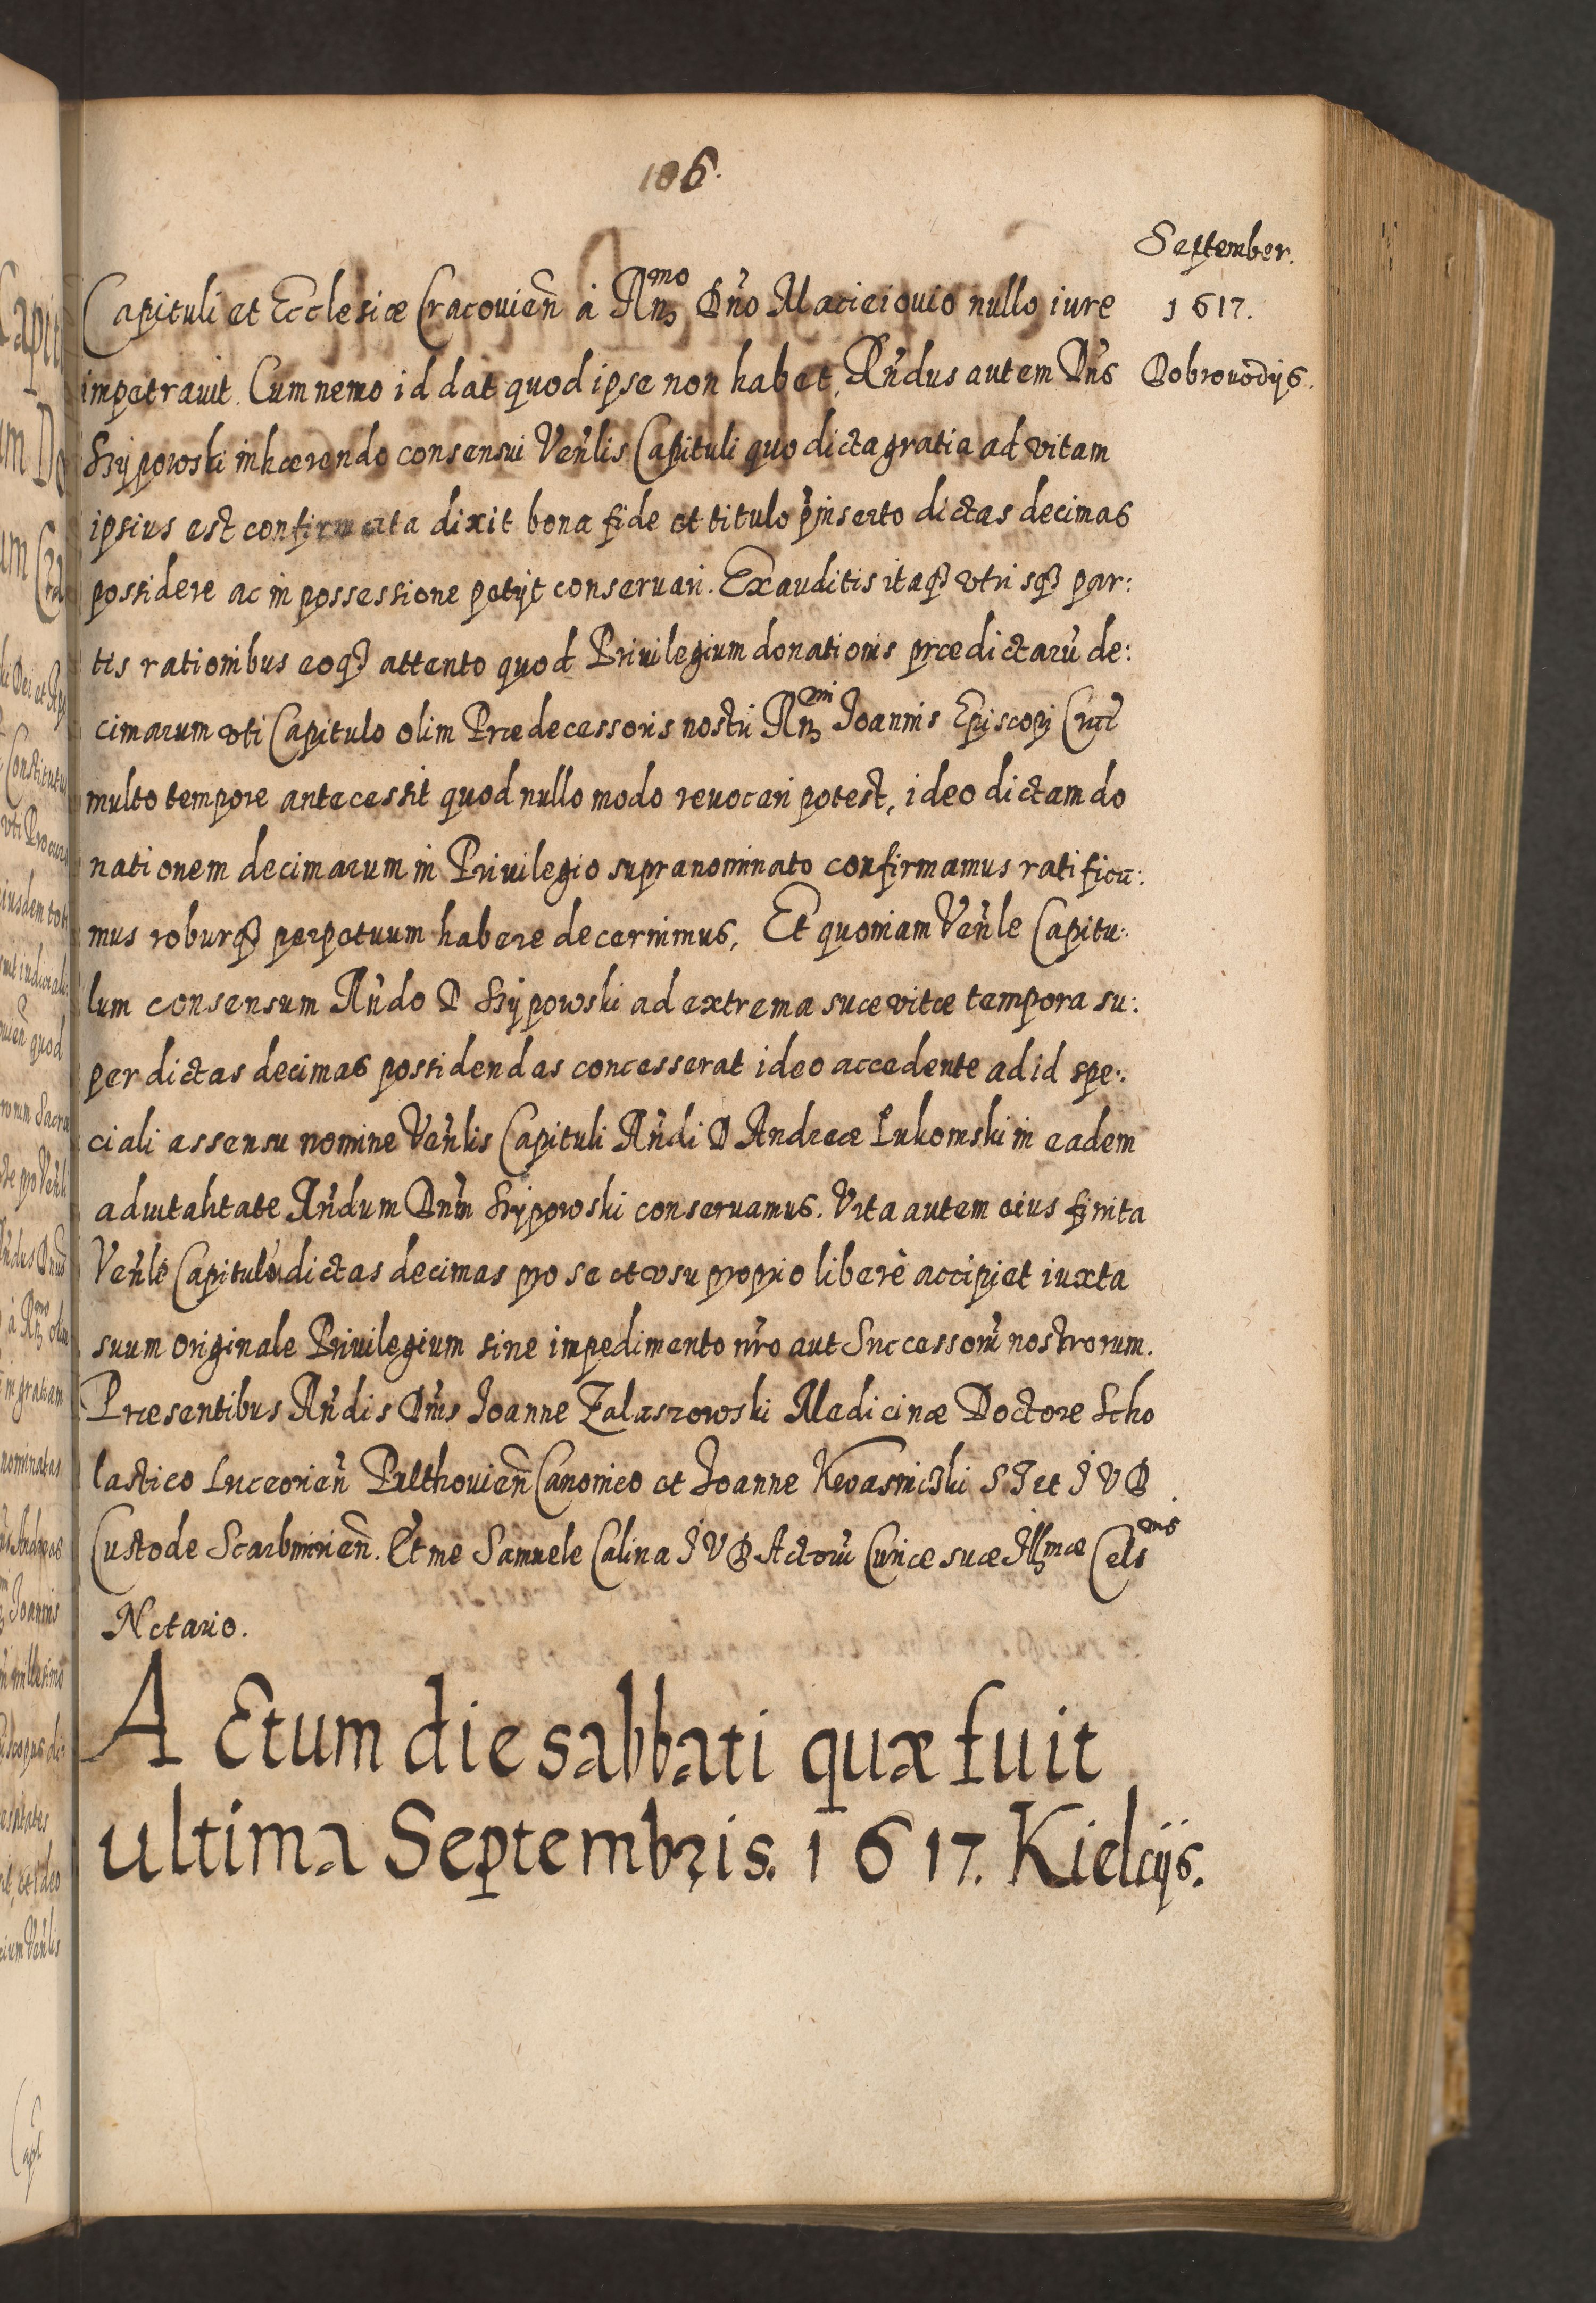 106.
September.
Capituli et Ecclesiæ Cracovień à Rṅ₃ᵐᵒ Dńo Macieiouio nullo iure
1617.
impetrauit. Cum nemo id dat quod ipse non habet, Ańdus autem Dńs
Dobrouodijs.
Lijpowski inhærendo consensui Veńlis Capituli quo dicta gratia ad vitam
ipsius est confirmata dixit bona fide et titulo p̃inserto dictas decimas
possidere ac in possessione petijt conseruari. Exauditis itaqʒ vtrisqʒ par:
tis rationibus eoqʒ attento quod Priuilegium donationis prædictarũ de:
cimarum vti Capitulo olim Prædecessoris nostri Rṅ₃ᵐⁱ Joannis Episcopi
multo tempore antecessit quod nullo modo reuocari potest, ideo dictam do
nationem decimarum in Priuilegio supranominato confirmamus ratifica:
mus roburqʒ perpetuum habere decernimus, Et quoniam Veńle Capitu:
lum consensum Rńdo D Lijpowski ad extrema suæ vitæ tempora su:
per dictas decimas possidendas concesserat ideo accedente ad id spe:
ciali assensu nomine Veńlis Capituli Rńdi D Andreæ Łukomski in eadem
aduitalitate Rńdum Dnm̃ Lijpowski conseruamus. Vita autem eius finita
Veńle Capitulũ dictas decimas pro se et vsu proprio liberè accipiet iuxta
suum originale Priuilegium sine impedimento ńro aut Successorũ nostrorum.
Præsentibus Rńdis Dńis Joanne Zalaszowski Medicinæ Doctore Scho
lastico Luceorień Pulthouień Canonico et Joanne Kwasnicski S T et J V D
Custode Scarbimirień. Et me Samuele Calina J V D Actorũ Curiæ suæ Ill₃ᵐæ Celsⁿⁱˢ
Notario.
ACtum die sabbati quæ fuit
ultima Septembris. 1617. Kielcijs.